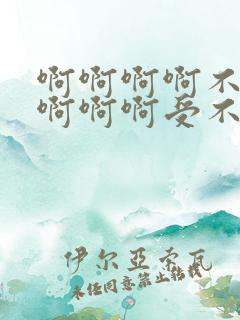 啊啊啊啊不
啊啊啊受不
伊尔亚索瓦
未经同意禁止转载